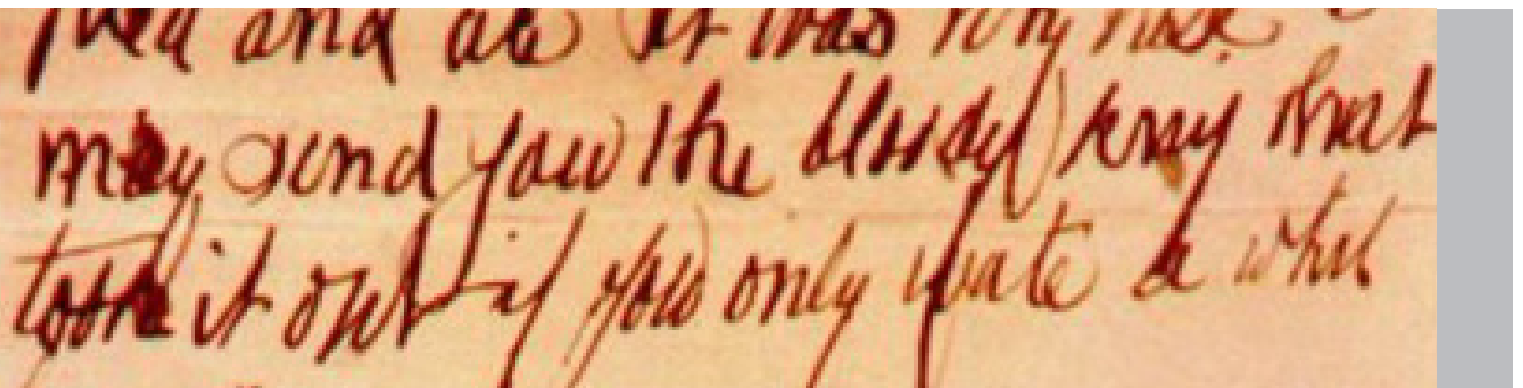 fried and ate it was very nise.
may send you the bloody knif that
took it out if you only wate a whil